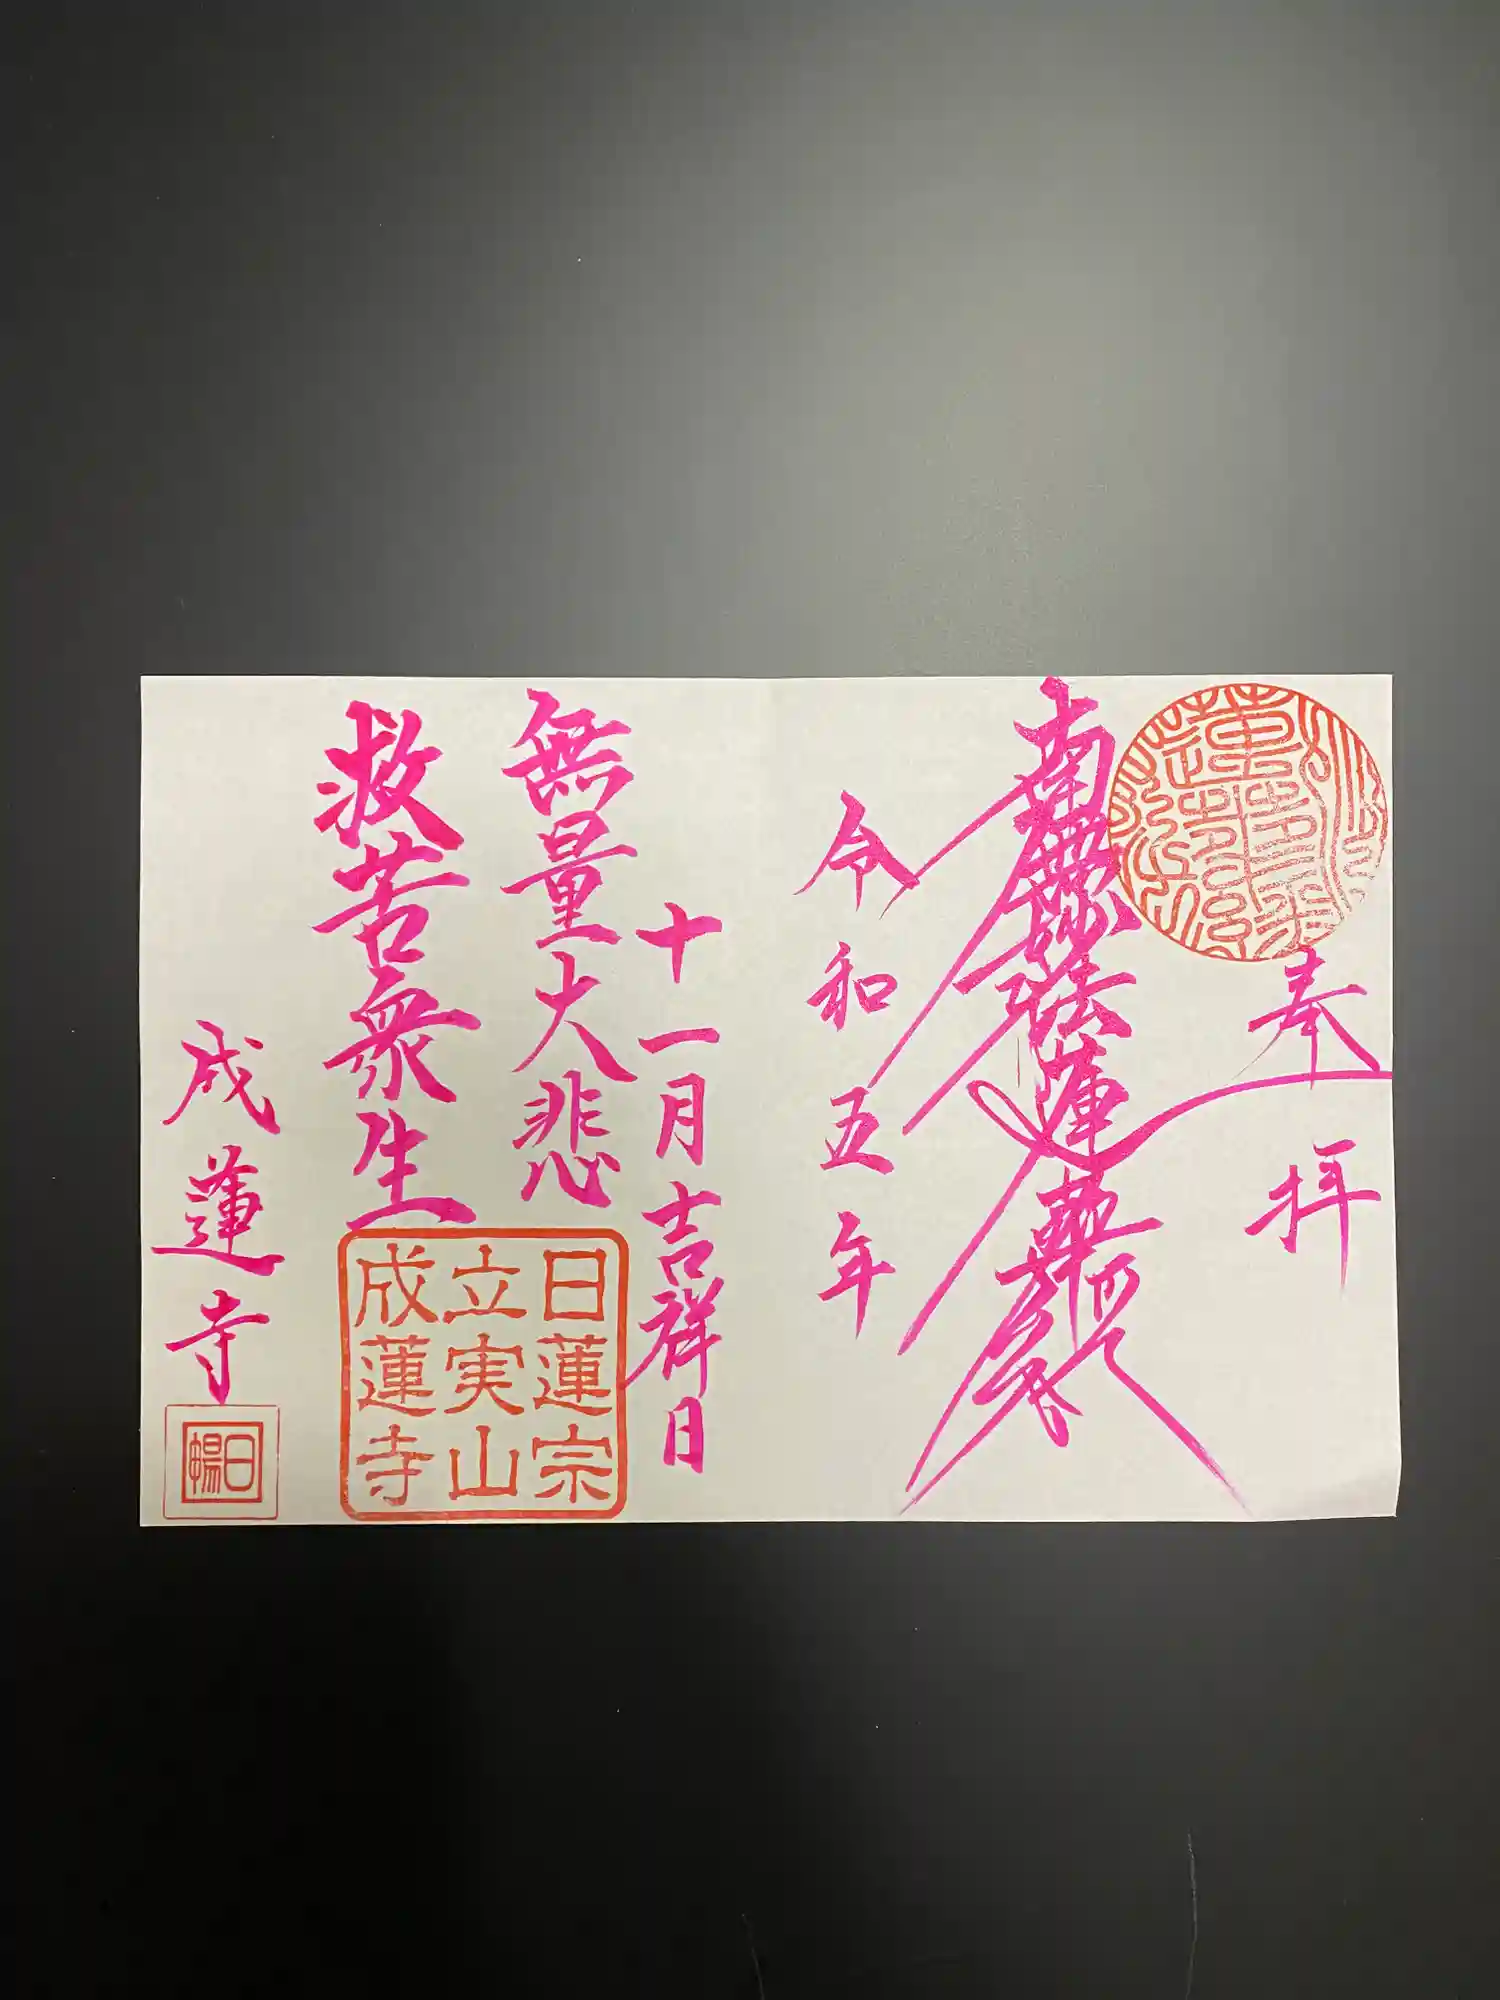 奉拝
南無妙法蓮華経
令和五年
十一月吉祥日
無量大悲
救苦衆生
日蓮宗
立実山
成蓮寺
成蓮寺
日暢